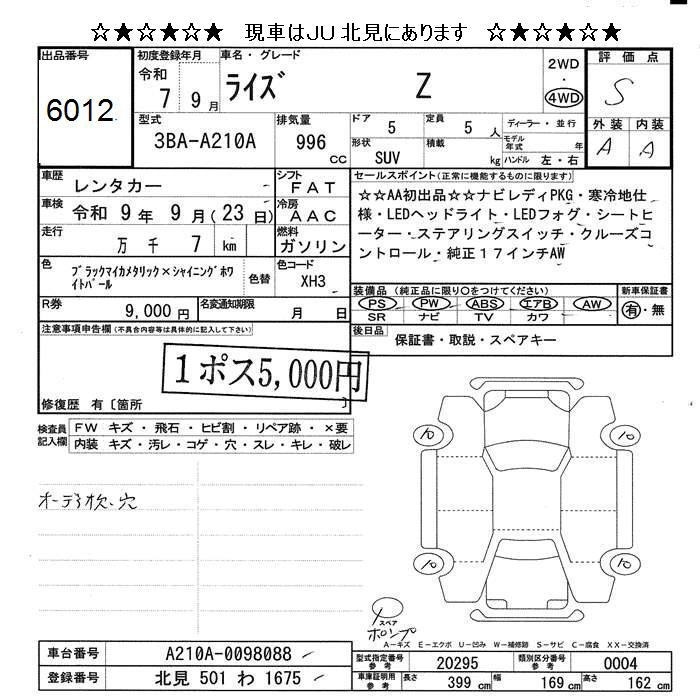 ☆★☆★☆★ 現車はJU北見にあります ☆★☆★☆★
出品番号 6012
初度登録年月 令和 7 9月
車名・グレード ライズ Z
2WD ・ 4WD
評価点 S
外装 内装
A A
型式 3BA-A210A
排気量 996 cc
ドア 5
定員 5 人
形状 SUV
積載 kg
ディーラー・並行
モデル年式 年
ハンドル 左・右
車歴 レンタカー
シフト FAT
車検 令和 9年 9月(23日)
冷房 AAC
走行 万 千 7 km
燃料 ガソリン
色 ブラックマイカメタリック×シャイニングホワイトパール
色替
色コード XH3
R券 9,000 円
名変通知期限 月 日
セールスポイント(正常に機能するものに限ります)
☆☆AA初出品☆☆ナビレディPKG・寒冷地仕
様・LEDヘッドライト・LEDフォグ・シートヒ
ーター・ステアリングスイッチ・クルーズコ
ントロール・純正17インチAW
装備品(純正品に限り○をつけてください)
PS PW ABS エアB AW
SR ナビ TV カワ
新車保証書
有・無
後日品 保証書・取説・スペアキー
注意事項申告欄(不具合内容等は具体的に記入して下さい)
1ポス5,000円
修復歴 有〔箇所 〕
検査員記入欄
FW キズ・飛石・ヒビ割・リペア跡・×要
内装 キズ・汚レ・コゲ・穴・スレ・キレ・破レ
穴
スペア
ポンプ
A-キズ E-エクボ U-凹み W-補修跡 S-サビ C-腐食 XX-交換済
車台番号 A210A-0098088
登録番号 北見 501 わ 1675
型式指定番号 参考 20295
類別区分番号 参考 0004
車庫証明用 参考 長さ 399 cm 幅 169 cm 高さ 162 cm